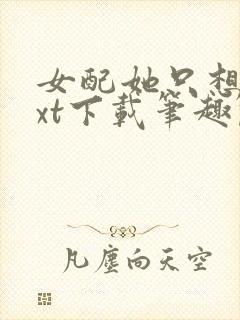 女配她只想
xt下载笔趣
凡尘向天空